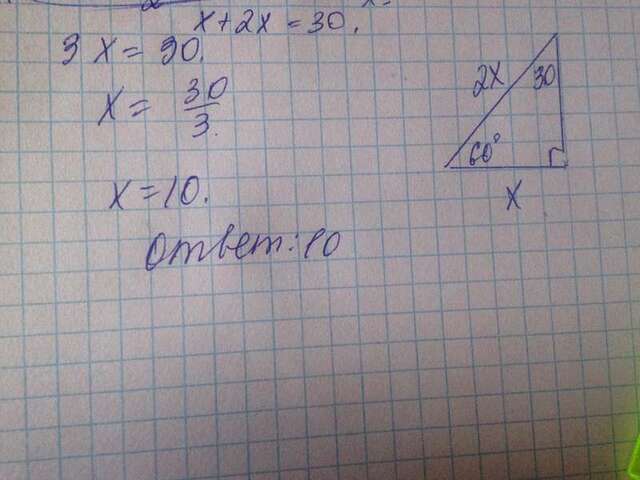 x + 2x = 30.
3x = 30.
x = 30/3.
x = 10.
Ответ: 10
2x
30
60°
x